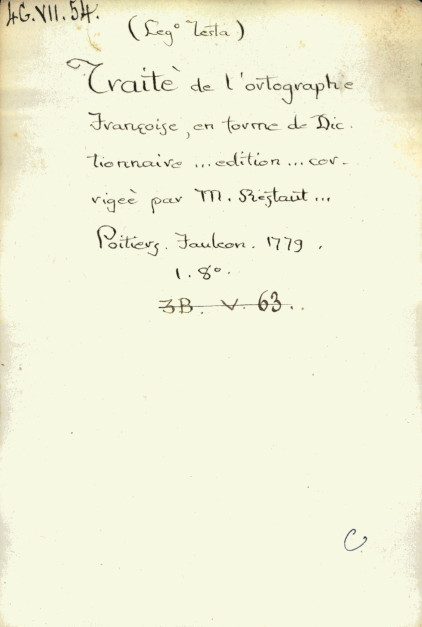 4G.VII.54.
(Leg° Testa)
Traitè de l'ortographe
Françoise, en forme de Dic-
tionnaire ... edition ... cor-
rigeè par M. Restaut ...
Poitiers. Faulcon. 1779.
1. 8°.
3B. V. 63.
C